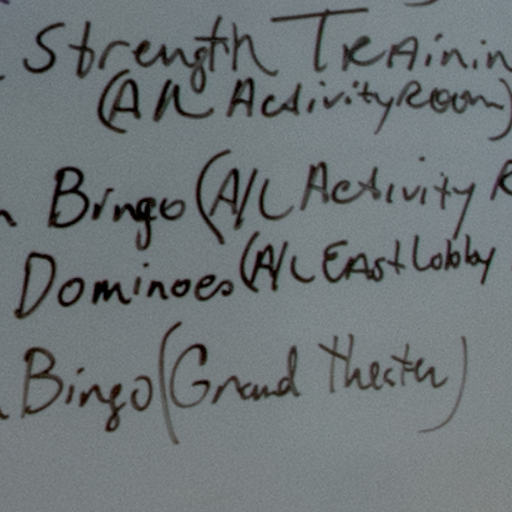 Strength Trainin
(A/L Activity Room)
Bingo (A/L Activity R
Dominoes (A/L East Lobby
Bingo (Grand Theater)